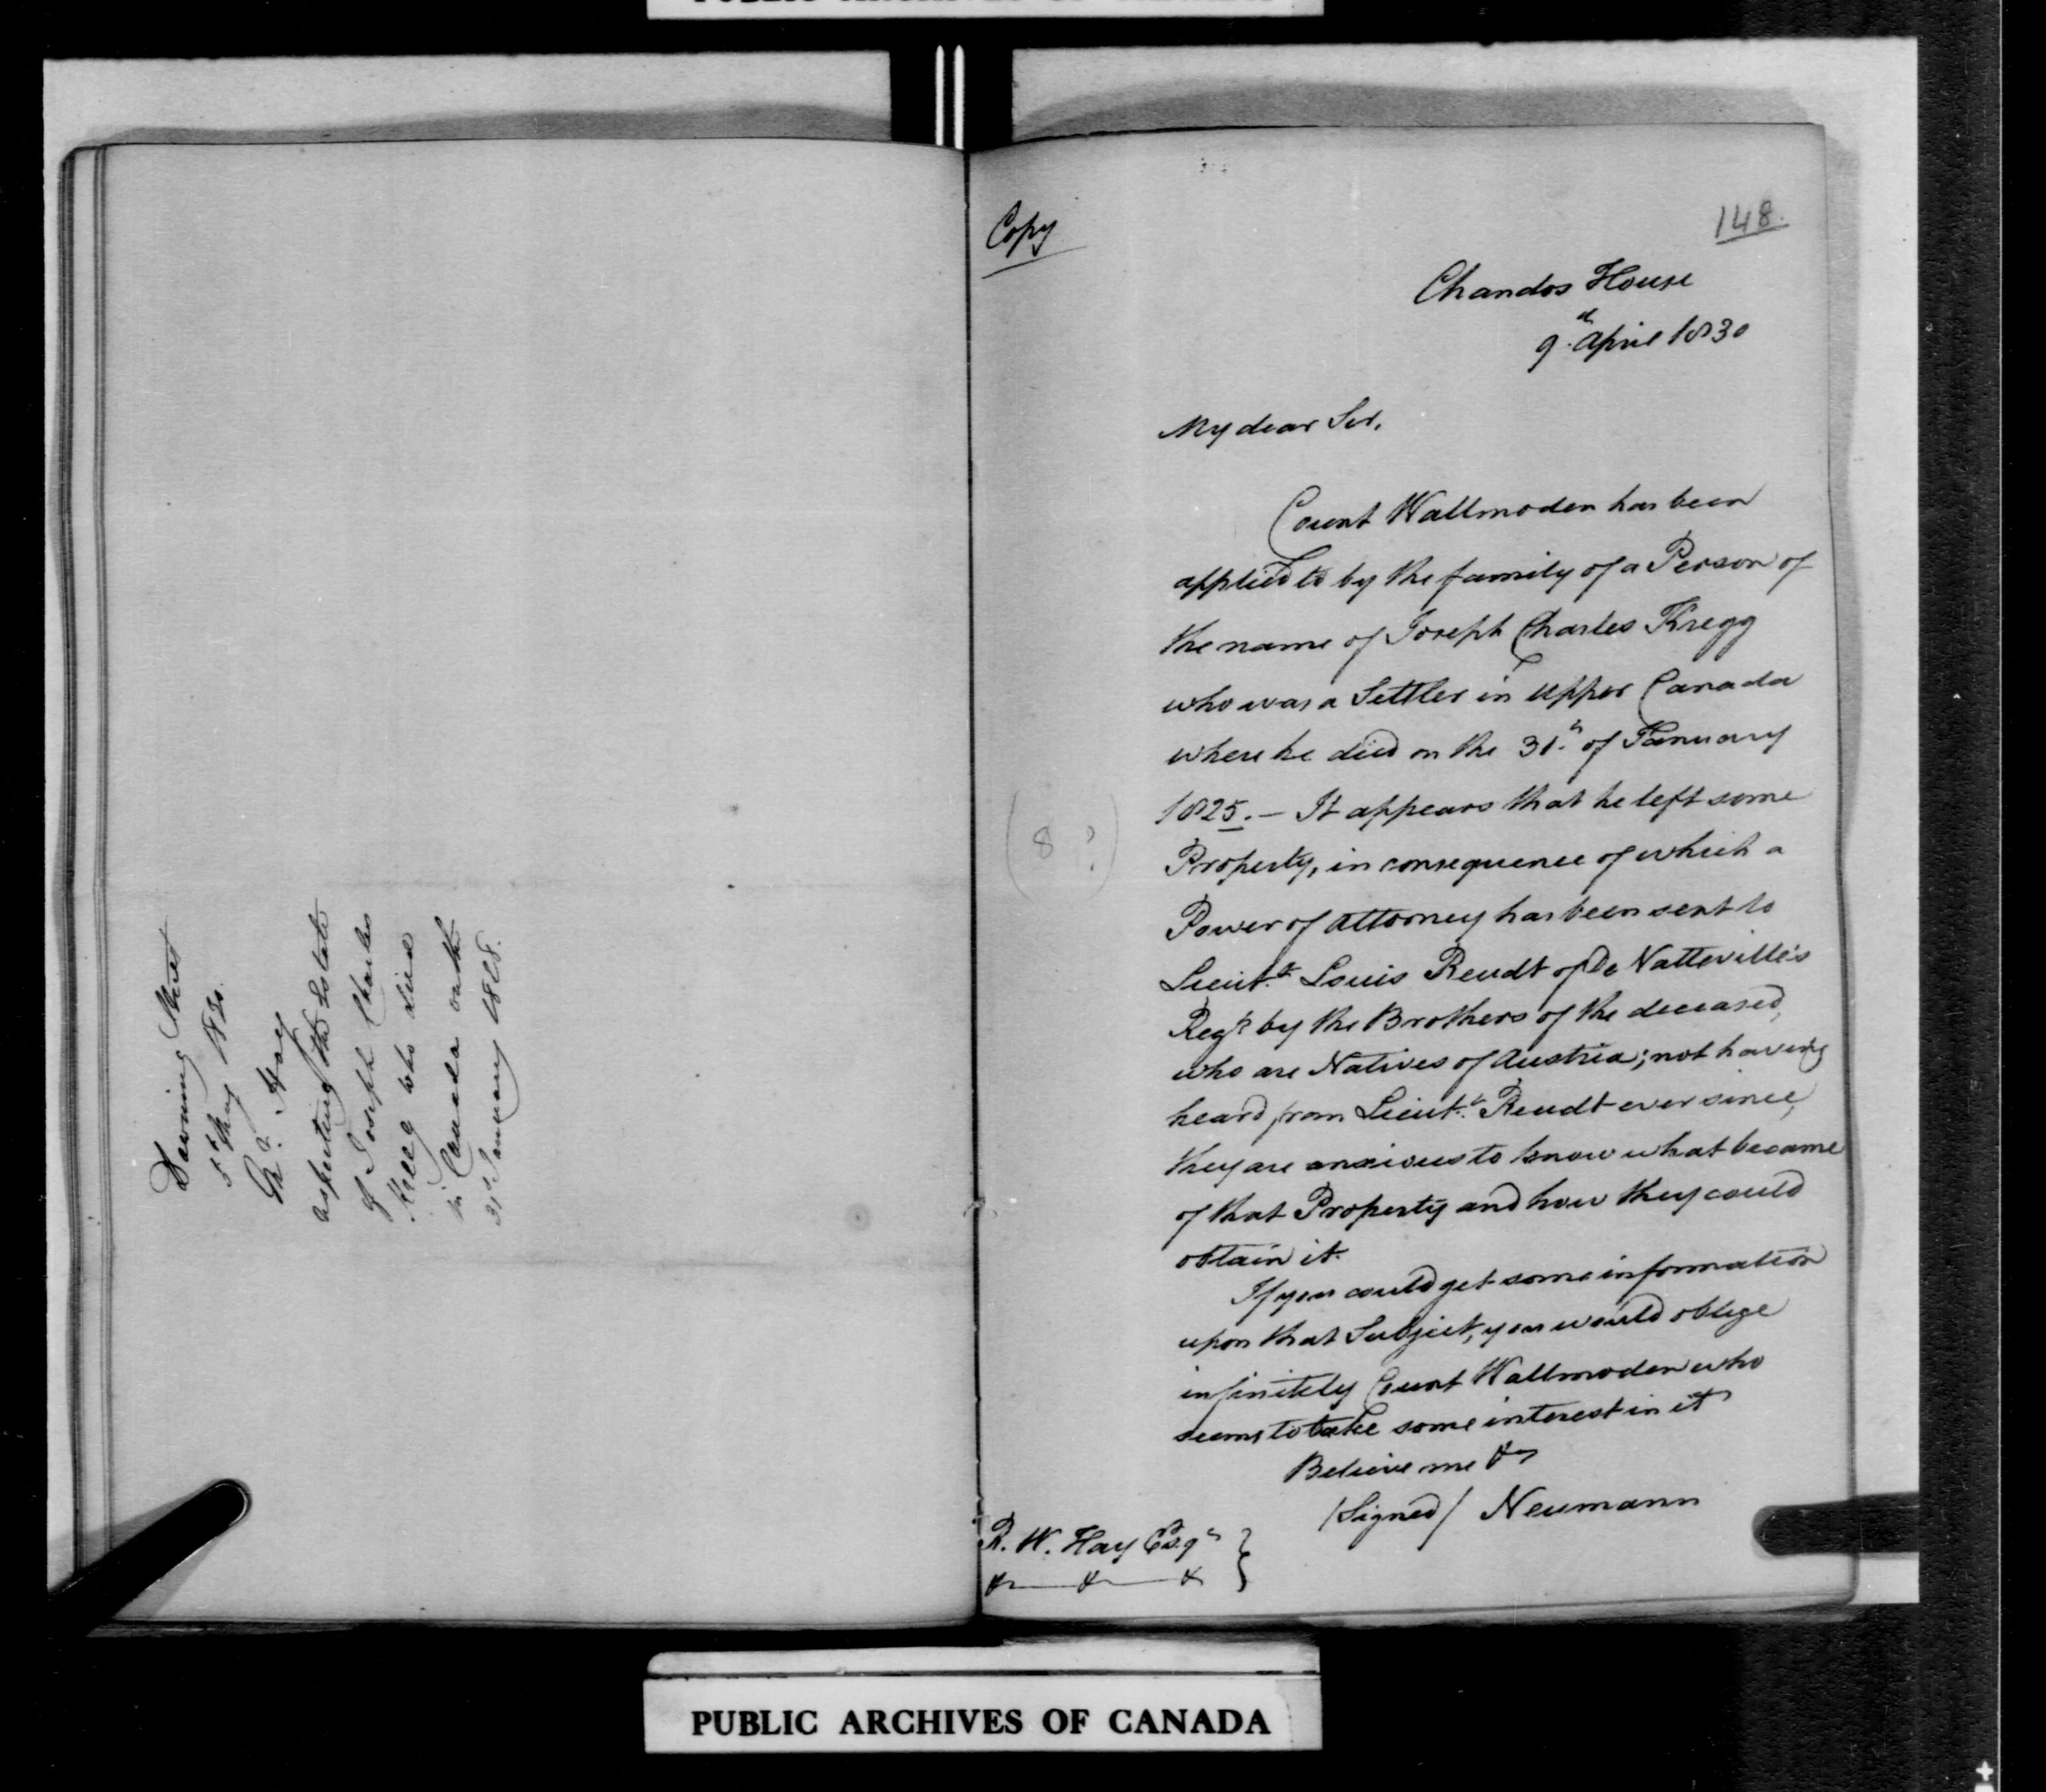 Downing Street
5th May 1830.
Mr. Hay
respecting the Estate
of Joseph Charles
Kregg who died
in Canada on the
31st January 1828.
Copy
148.
Chandos House
9th April 1830
My dear Sir,
Count Wallmoden has been
applied to by the family of a Person of
the name of Joseph Charles Kregg
who was a Settler in Upper Canada
where he died on the 31st of January
1825. — It appears that he left some
(8 ?)
Property, in consequence of which a
Power of Attorney has been sent to
Lieutt. Louis Rendt of De Watteville's
Regt. by the Brothers of the deceased,
who are Natives of Austria; not having
heard from Lieutt. Rendt ever since,
they are anxious to know what became
of that Property and how they could
obtain it.
If you could get some information
upon that Subject, you would oblige
infinitely Count Wallmoden who
seems to take some interest in it
Believe me &c
/Signed/ Neumann
R. W. Hay Esqr
&c — &c — &c
PUBLIC ARCHIVES OF CANADA